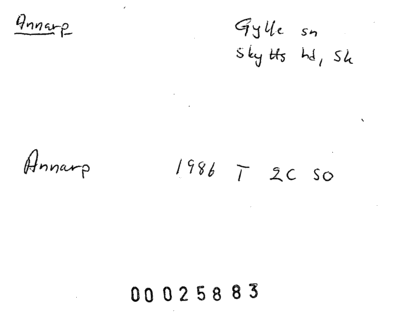 Annarp Gylle sn
Skytts hd, Sk
Annarp 1986 T 2C SO
00025883